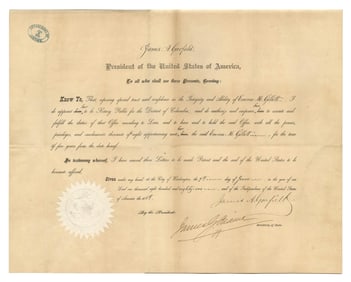 James A Garfield
President of the United States of America,
To all who shall see these Presents, Greeting:
Know Ye, That, reposing special trust and confidence in the Integrity and Ability of M. Gillett, I
do appoint her to be Notary Public for the District of Columbia, and do authorize and empower her to execute and
fulfill the duties of that Office according to Law, and to have and to hold the said Office, with all the powers,
privileges, and emoluments thereunto of right appertaining unto her the said M. Gillett, for the term
of five years from the date hereof.
In testimony whereof, I have caused these Letters to be made Patent and the seal of the United States to be
hereunto affixed.
Given under my hand, at the City of Washington, the day of June in the year of our
Lord one thousand eight hundred and eighty-one and of the Independence of the United States
of America the
James A Garfield
By the President:
James G Blaine
Secretary of State.